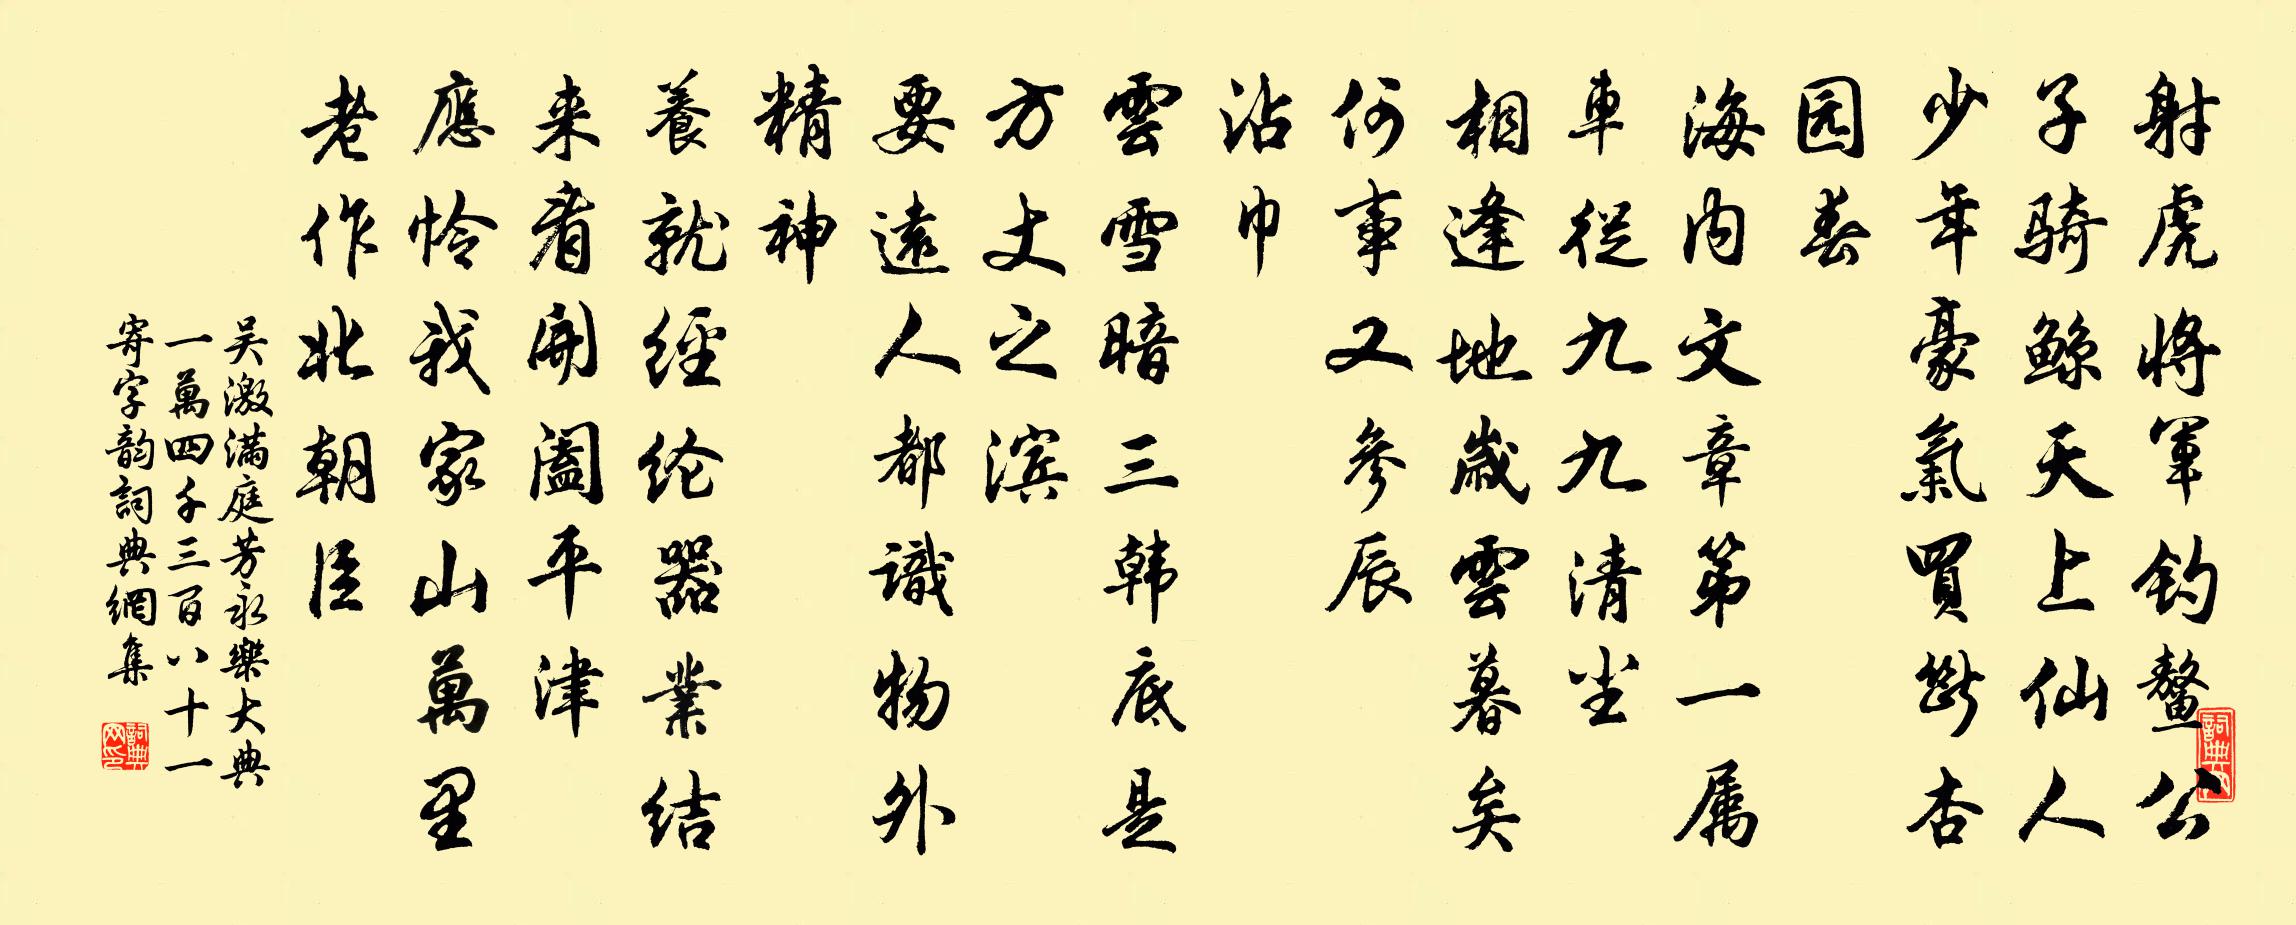 射虎将軍釣鼇公
子騎鲸天上仙人
少年豪氣買斷杏
园春
海内文章第一属
車從九九清尘
相逢地歲雲暮矣
何事又參辰
沾巾
雲雪暗三韩底是
方丈之滨
要遠人都識物外
精神
養就經纶器業结
来看開阖平津
應怜我家山萬里
老作北朝臣
吴激满庭芳永樂大典
一萬四千三百八十一
寄字韵詞典網集
詞典网印